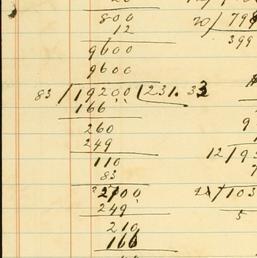 800
12
9600
9600
83 / 19200 / 231.33
166
260
249
110
83
2700
249
210
166
20 / 798
399
9
12 / 93
103
5